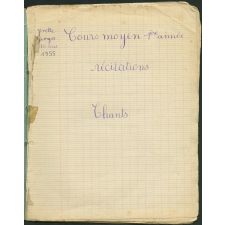 Yvette
1955
Cours moyen 1re année
récitations
Chants